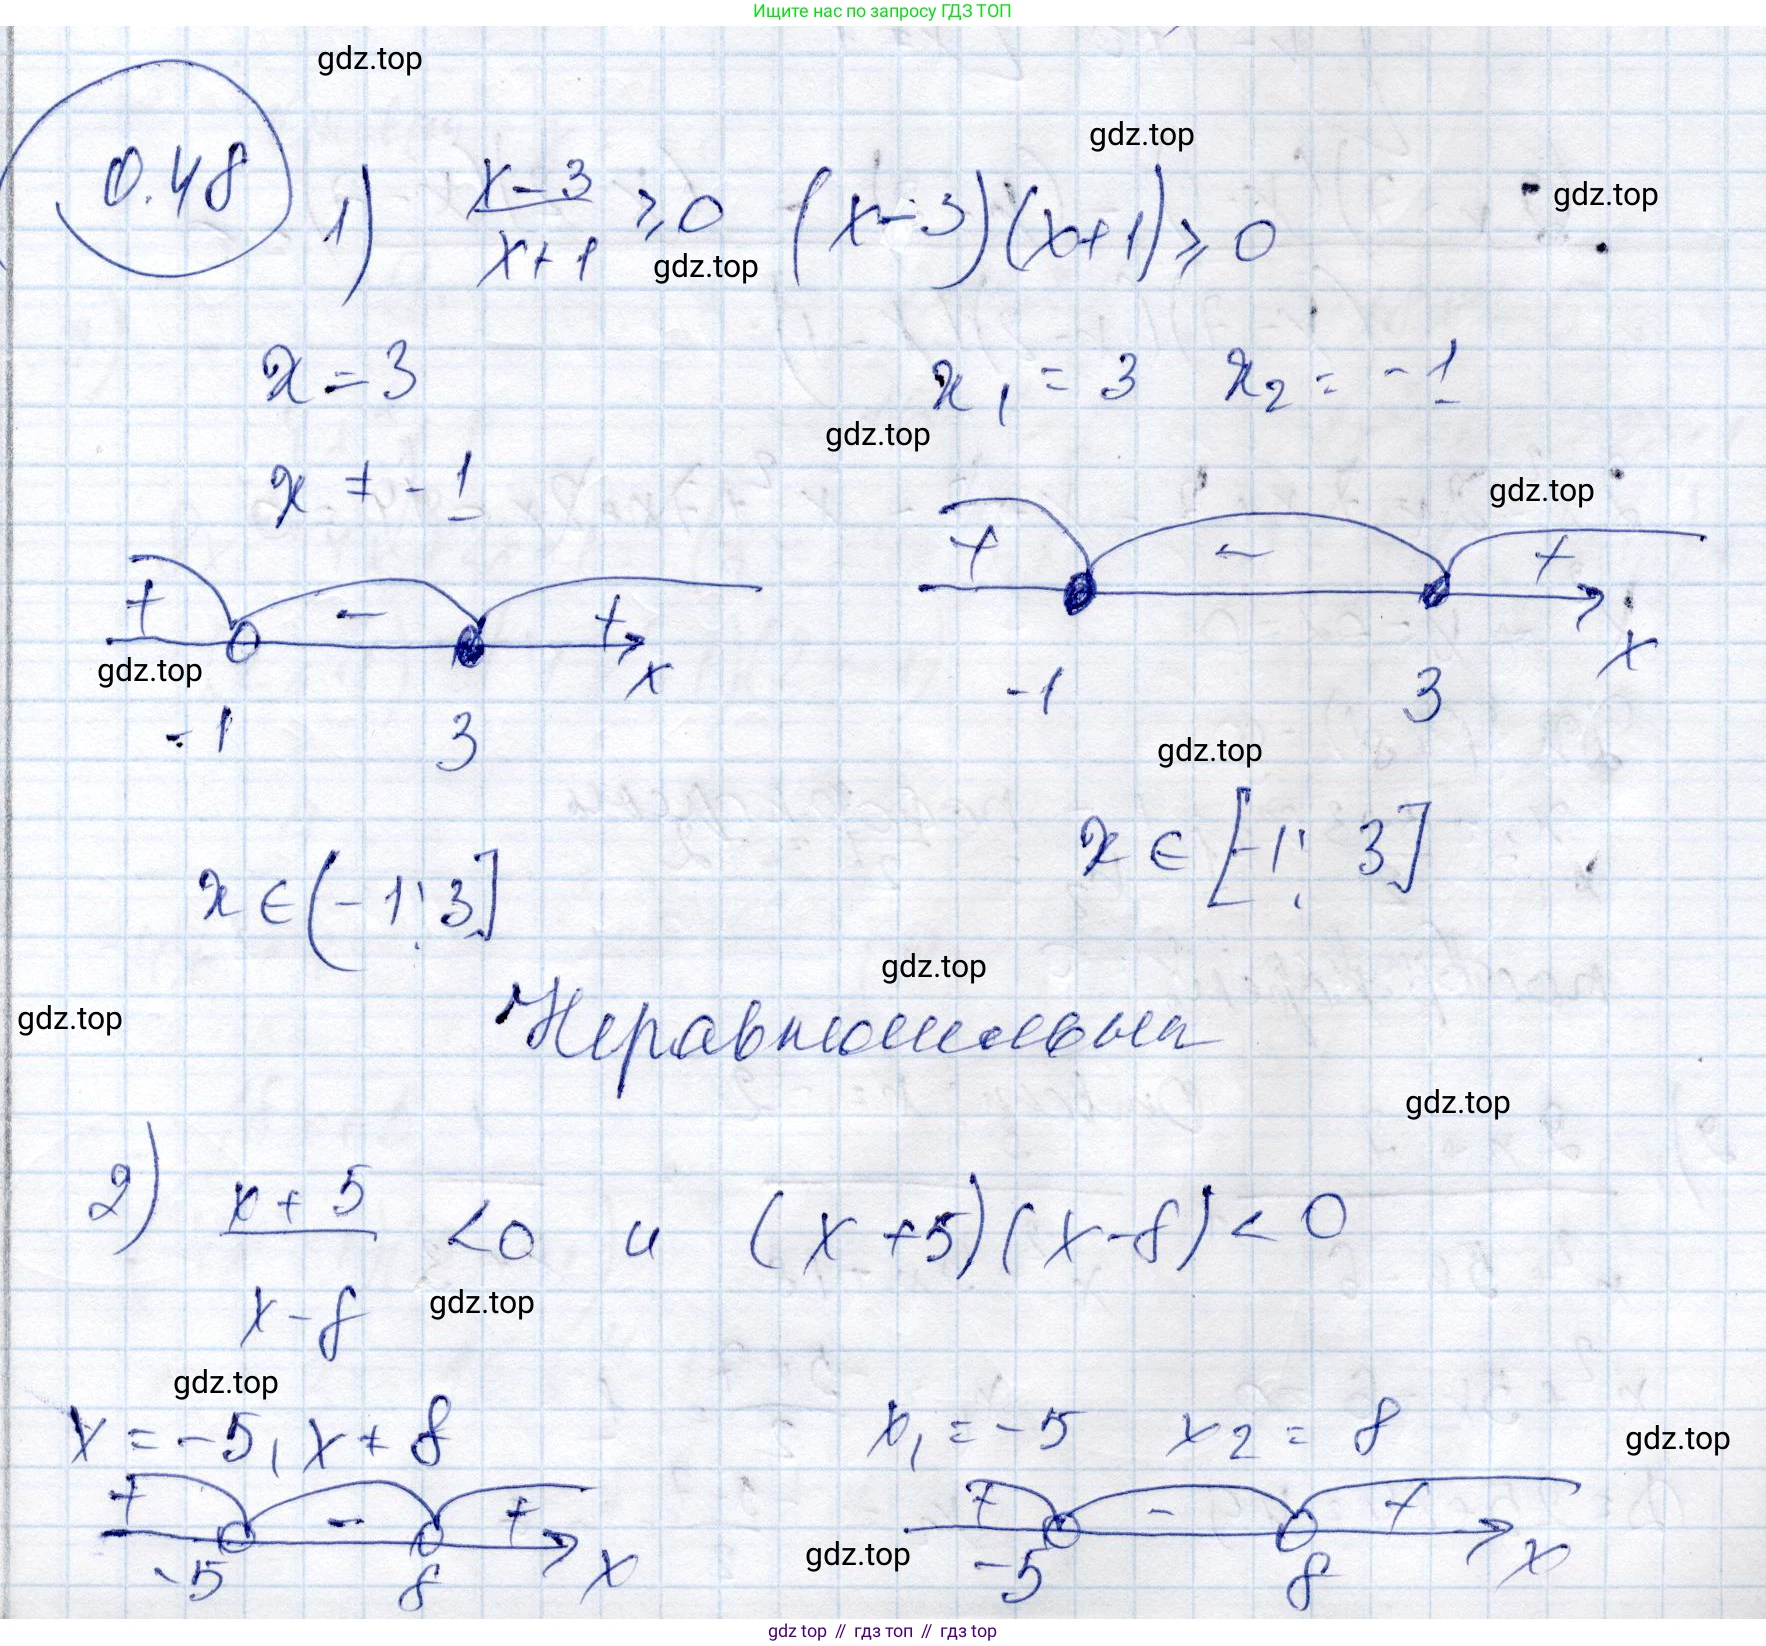 Ищите нас по запросу ГДЗ ТОП
gdz.top
gdz.top
0.48
1) x-3/x+1 ≥ 0 (x-3)(x+1) ≥ 0
gdz.top
gdz.top
x = 3 x₁ = 3 x₂ = -1
gdz.top
x ≠ -1
gdz.top
+ - +
+ - + x
x
gdz.top
-1 3
-1 3
gdz.top
x ∈ [-1; 3]
x ∈ (-1; 3]
gdz.top
gdz.top
Неравносильны
gdz.top
2) x+5/x-8 < 0 и (x+5)(x-8) < 0
gdz.top
gdz.top
x = -5, x ≠ 8 x₁ = -5 x₂ = 8
gdz.top
+ - + + - +
gdz.top
-5 8 x -5 8 x
gdz top // гдз топ // гдз top